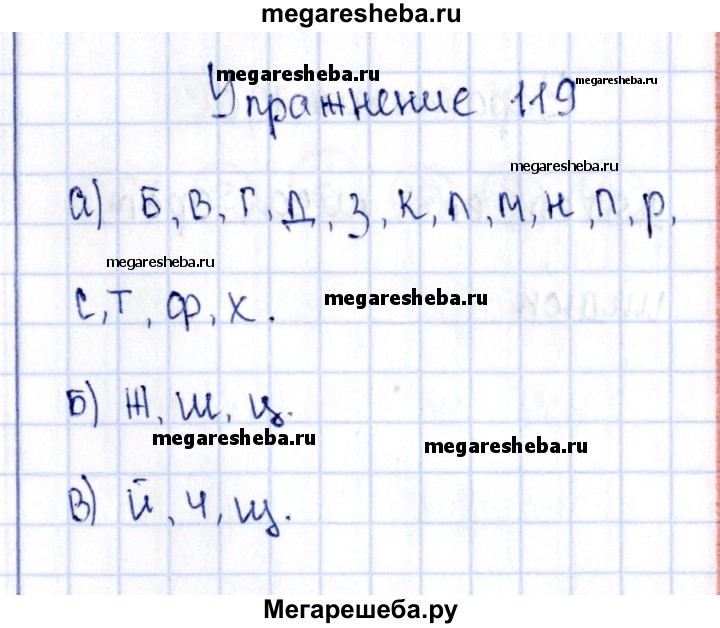 megaresheba.ru
megaresheba.ru
megaresheba.ru
Упражнение 119
megaresheba.ru
а) Б, в, г, д, з, к, л, м, н, п, р,
megaresheba.ru
с, т, ф, х.
megaresheba.ru
б) Ж, ш, ц.
megaresheba.ru
megaresheba.ru
в) й, ч, щ.
Мегарешеба.ру